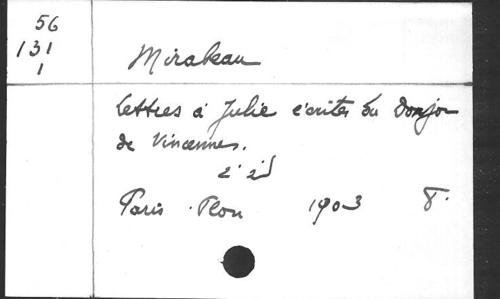 56
131
1
Mirabeau
Lettres à Julie écrites du Donjon
de Vincennes.
2. éd
Paris. Plon 1903 8.